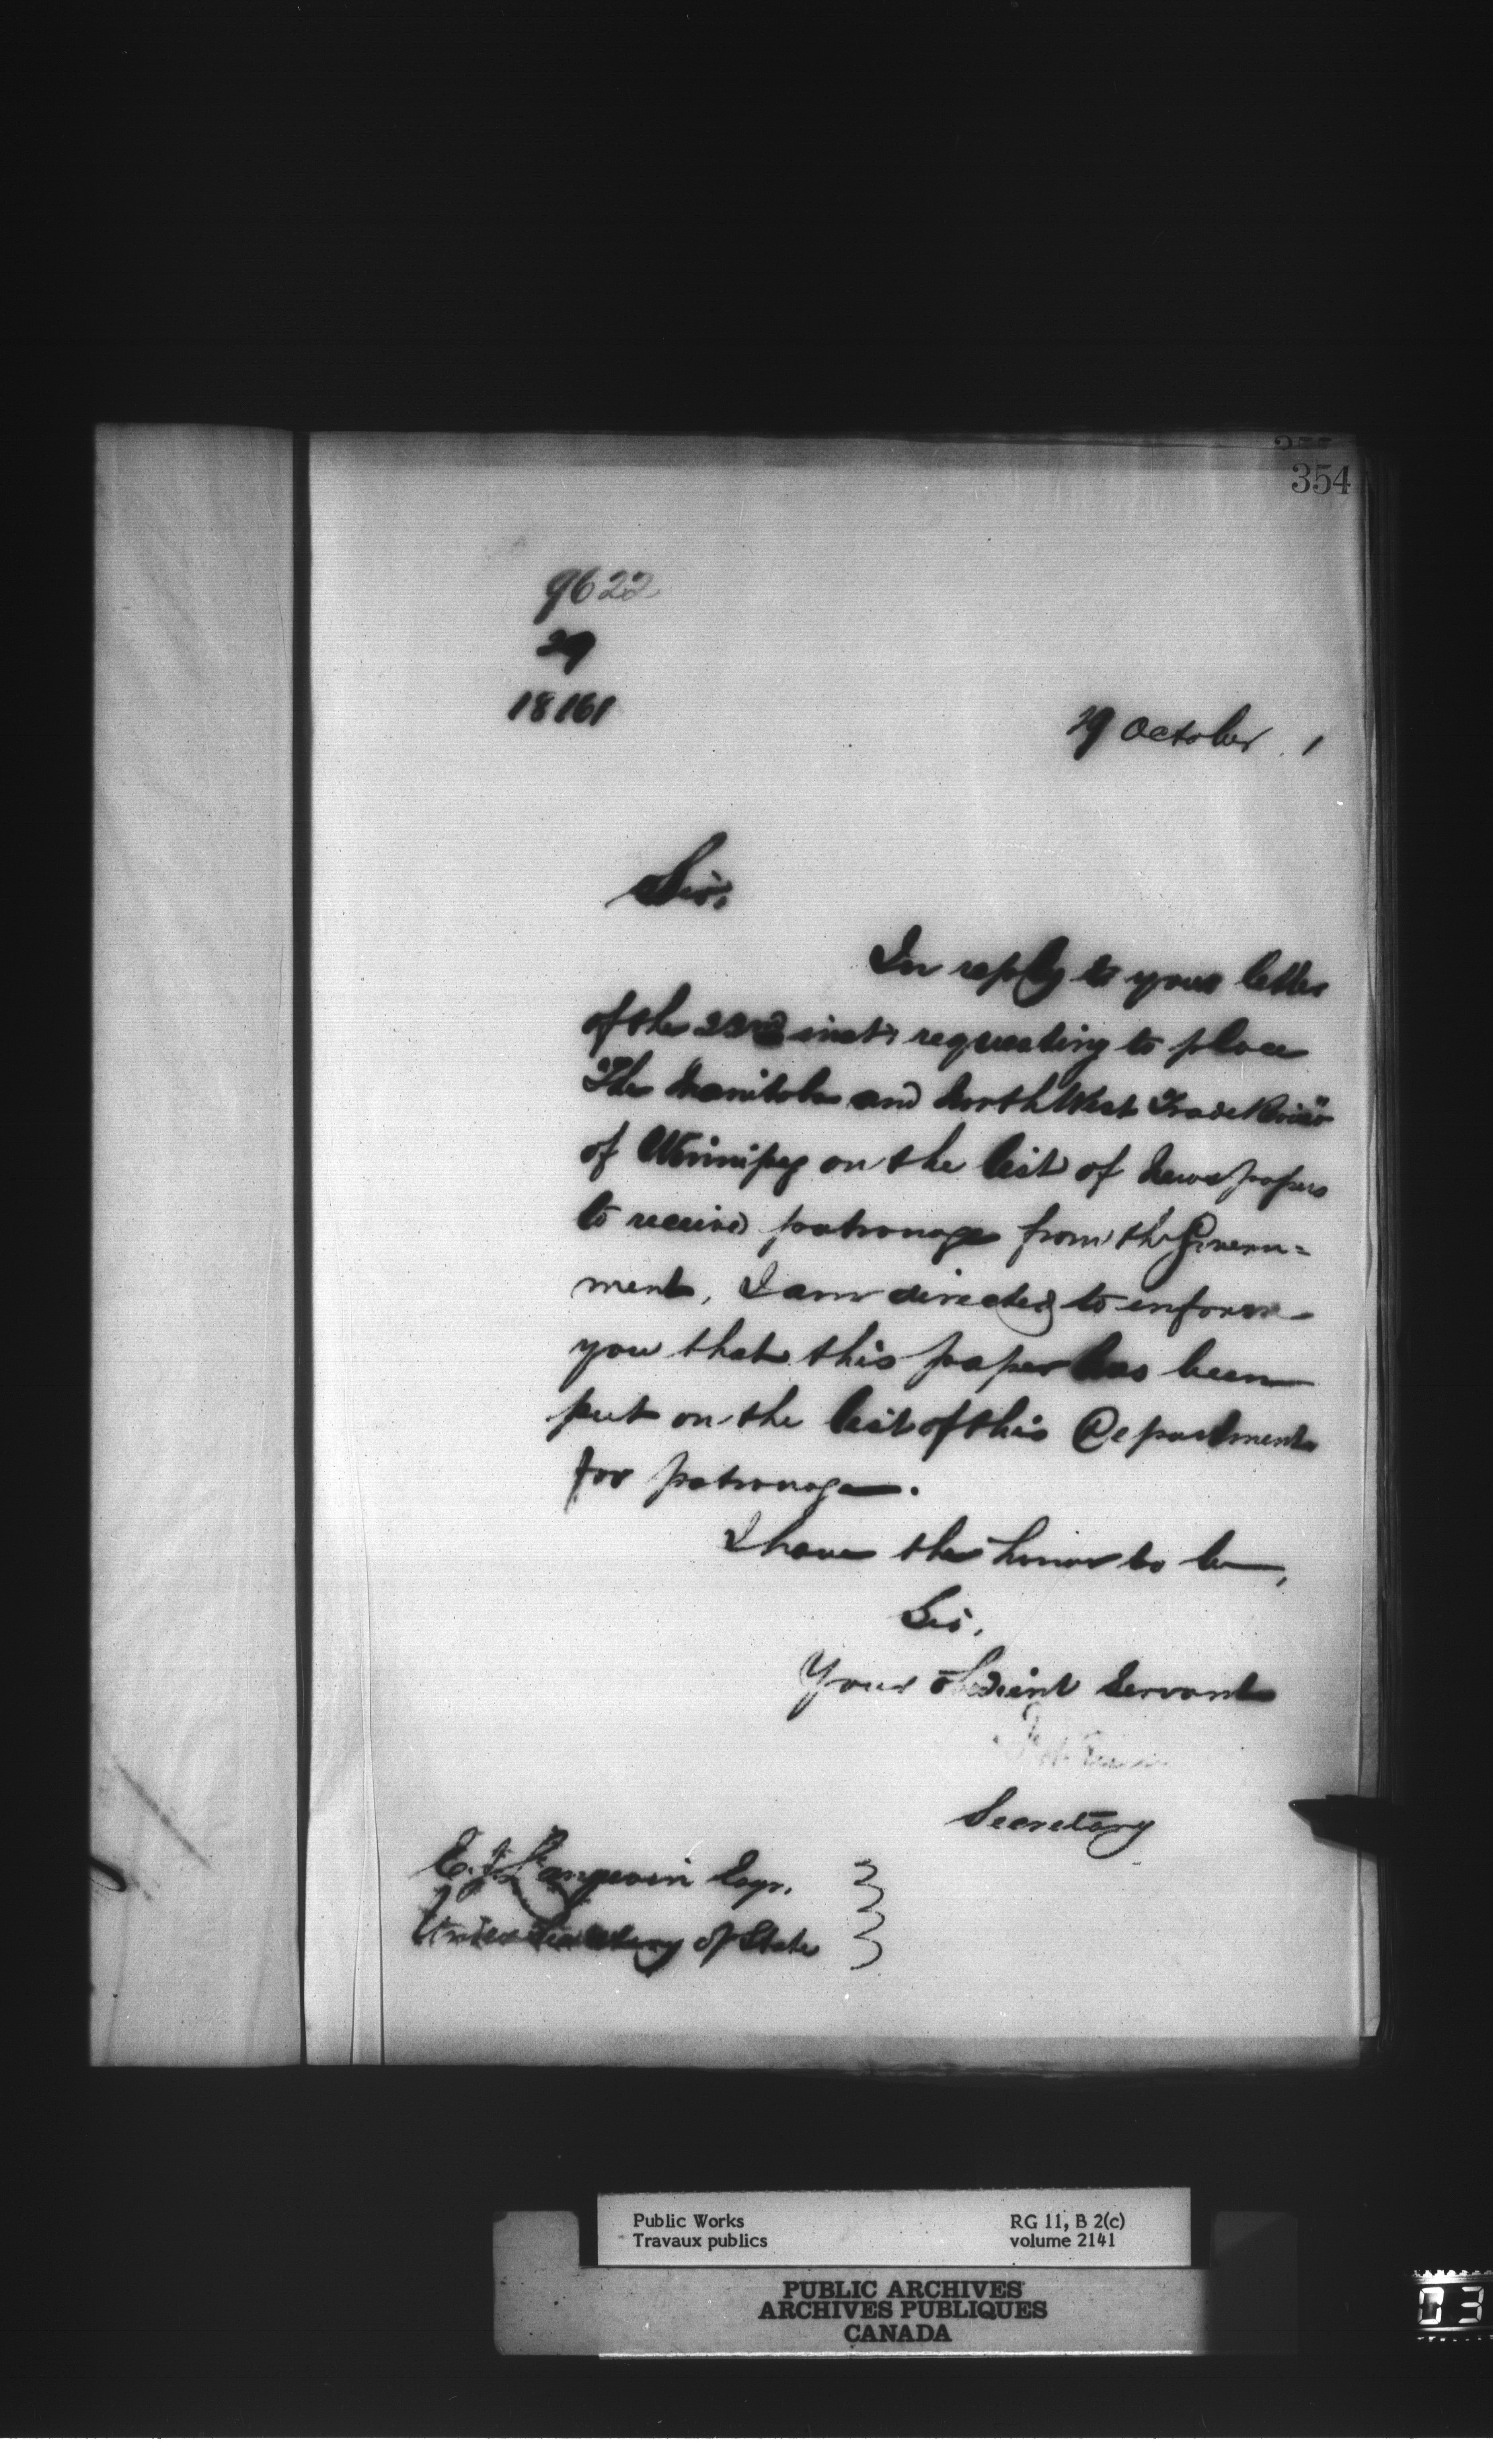 354
9622
29
18161
29 October . 1
Sir,
In reply to your letter
of the 22nd inst: requesting to place
"The Manitoba and North West Trade Review"
of Winnipeg on the list of Newspapers
to receive patronage from the Govern=
ment, I am directed to inform
you that this paper has been
put on the list of this Department
for patronage.
I have the honor to be,
Sir,
Your obedient Servant
Secretary
E. J. Langevin Esqr.
Under Secretary of State
Public Works RG 11, B 2(c)
Travaux publics volume 2141
PUBLIC ARCHIVES
ARCHIVES PUBLIQUES
CANADA
03